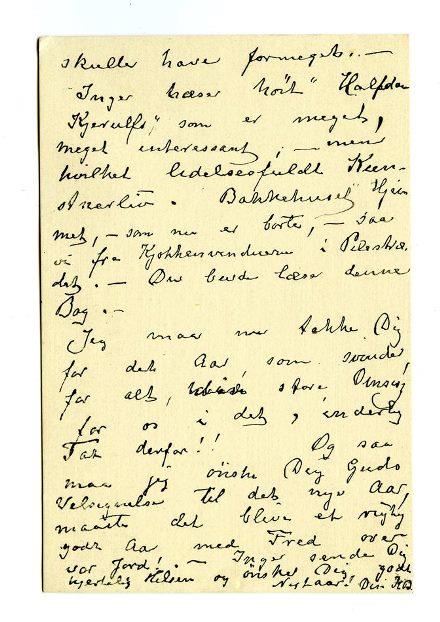 skulde have formeget. —
Inger læser höit "Halfdan
Kjerulfs", som er meget,
meget interessant, — men
hvilket lidelsesfuldt Kun-
stnerliv. Bakkehuset Hjem
met, — som nu er borte, — saa
vi fra Kjøkkenvinduerne i Pilestræ
det. — Du burde læse denne
Bog. —
Jeg maa nu takke Dig
for det Aar, som svinder,
for alt, store Omsorg
for os i det, inderlig
Tak derfor!! Og saa
maa jeg önske Dig Guds
Velsignelse til det nye Aar,
maatte det blive et rigtig
godt Aar med Fred over
vor Jord! — Inger sender Dig
hjertelig Hilsen og önsker Dig godt
Nytaar! Din